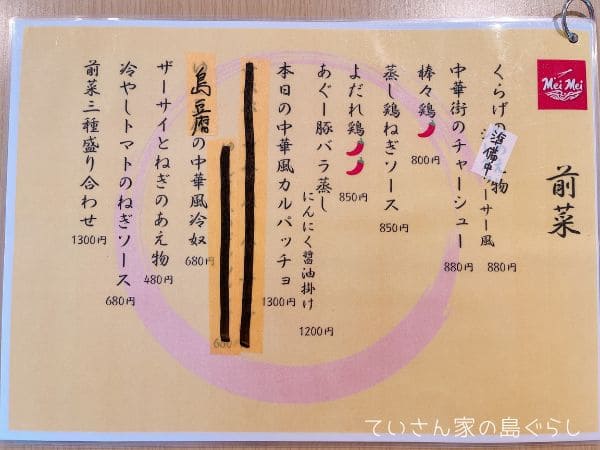 Mei Mei
前菜
くらげの
物
ーサー風
880円
準備中
中華街のチャーシュー
880円
棒々鶏
800円
蒸し鶏ねぎソース
850円
よだれ鶏
850円
あぐー豚バラ蒸し
にんにく醤油掛け
1200円
本日の中華風カルパッチョ
1300円
島豆腐の中華風冷奴
680円
ザーサイとねぎのあえ物
480円
冷やしトマトのねぎソース
680円
前菜三種盛り合わせ
1300円
ていさん家の島ぐらし